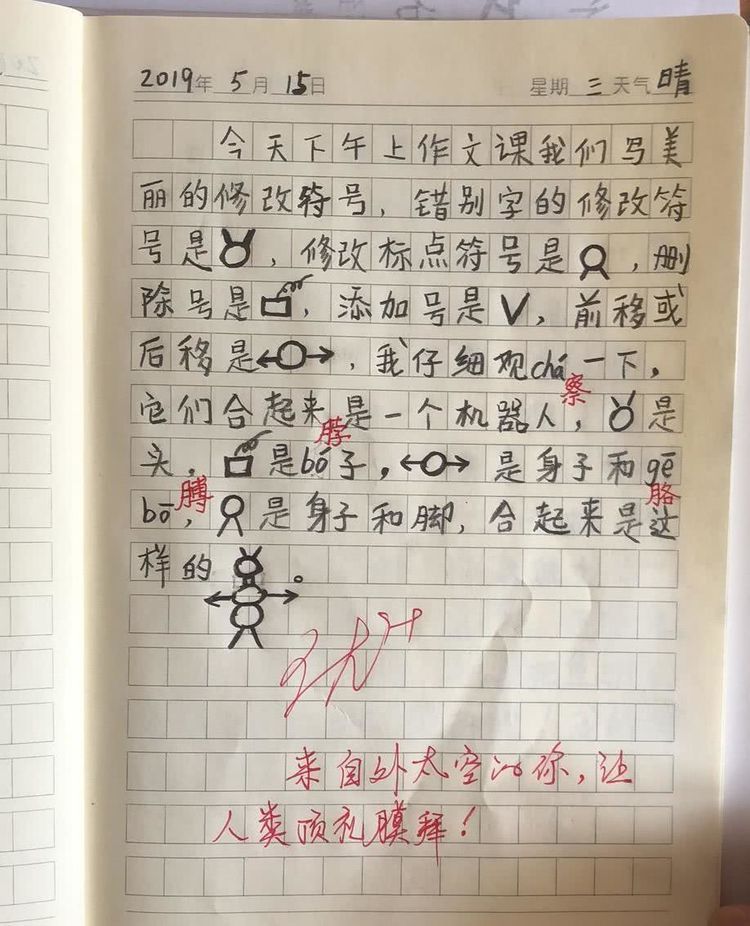 2019年 5月 15日 星期 三 天气 晴
今天下午上作文课我们写美
丽的修改符号，错别字的修改符
号是，修改标点符号是，删
除号是，添加号是V，前移或
后移是←○→，我仔细观chá一下，
察
它们合起来是一个机器人，是
脖
头，是bó子，←○→是身子和gē
膊 胳
bō，是身子和脚，合起来是这
样的。
优++
来自外太空的你，让
人类顶礼膜拜！